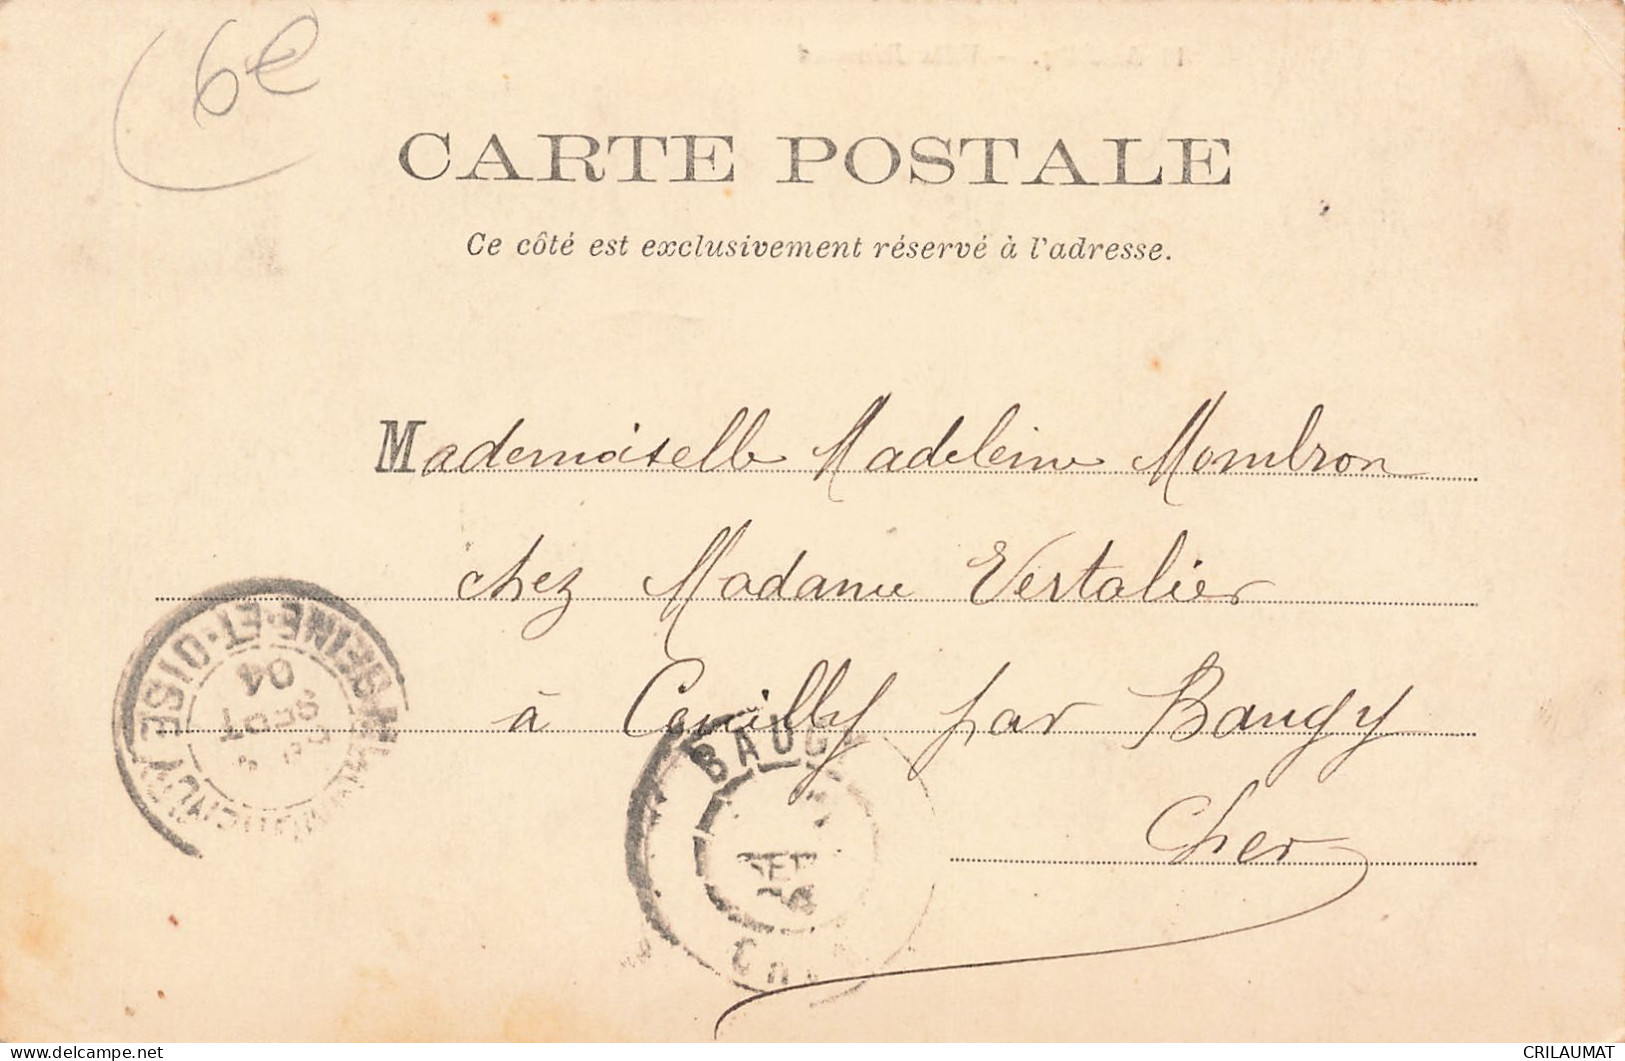 6€
CARTE POSTALE
Ce côté est exclusivement réservé à l'adresse.
Mademoiselle Madeleine Mombron
chez Madame Vertalier
à Couilly par Baugy
Cher
SEINE-ET-OISE
SEPT
04
BAUGY
SEPT
04
Cher
delcampe.net
CRILAUMAT